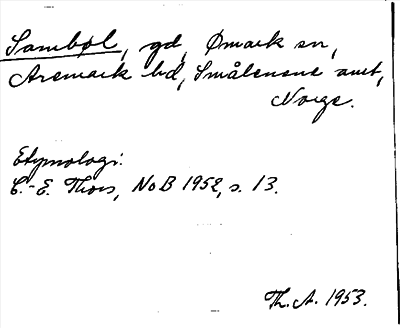 Sambøl, gd, Ømark sn,
Aremark hd, Smålenene amt,
Norge.
Etymologi:
C.-E. Thors, NoB 1952, s. 13.
Th. A. 1953.